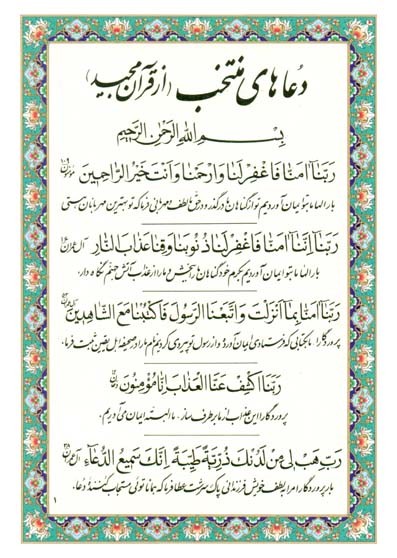 دعاهای منتخب (از قرآن مجید)
بسم الله الرحمن الرحیم
رَبَّنَا آمَنَّا فَاغْفِرْ لَنَا وَارْحَمْنَا وَأَنْتَ خَيْرُ الرَّاحِمِينَ
بارالها ما بتو ایمان آوردیم تو از گناهان ما درگذر و در حق ما لطف و مهربانی فرما که تو بهترین مهربانان هستی
رَبَّنَا إِنَّنَا آمَنَّا فَاغْفِرْ لَنَا ذُنُوبَنَا وَقِنَا عَذَابَ النَّارِ آل عمران
بارالها ما بتو ایمان آوردیم بکرم خود گناهان ما ببخش و ما را از عذاب آتش جهنم نگاه دار.
رَبَّنَا آمَنَّا بِمَا أَنْزَلْتَ وَاتَّبَعْنَا الرَّسُولَ فَاكْتُبْنَا مَعَ الشَّاهِدِينَ
پروردگارا ما بکتابی که فرستادی ایمان آورده و از رسول تو پیروی کردیم نام ما را در صحیفه اهل یقین ثبت فرما.
رَبَّنَا اكْشِفْ عَنَّا الْعَذَابَ إِنَّا مُؤْمِنُونَ
پروردگارا این عذاب از ما برطرف ساز. ما البته ایمان می‌آوریم.
رَبِّ هَبْ لِي مِنْ لَدُنْكَ ذُرِّيَّةً طَيِّبَةً إِنَّكَ سَمِيعُ الدُّعَاءِ آل عمران
بار پروردگارا مرا بلطف خویش فرزندانی پاک سرشت عطا فرما که همانا توئی مستجاب کننده دعا.
۱